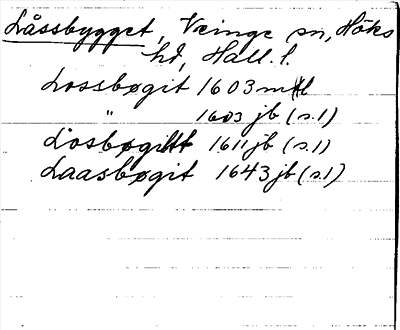 Låssbygget, Veinge sn, Höks
hd, Hall. l.
Lossbøgit 1603 mtl
" 1603 jb (s.1)
Losbøgitt 1611 jb (s.1)
Laasbøgit 1643 jb (s.1)